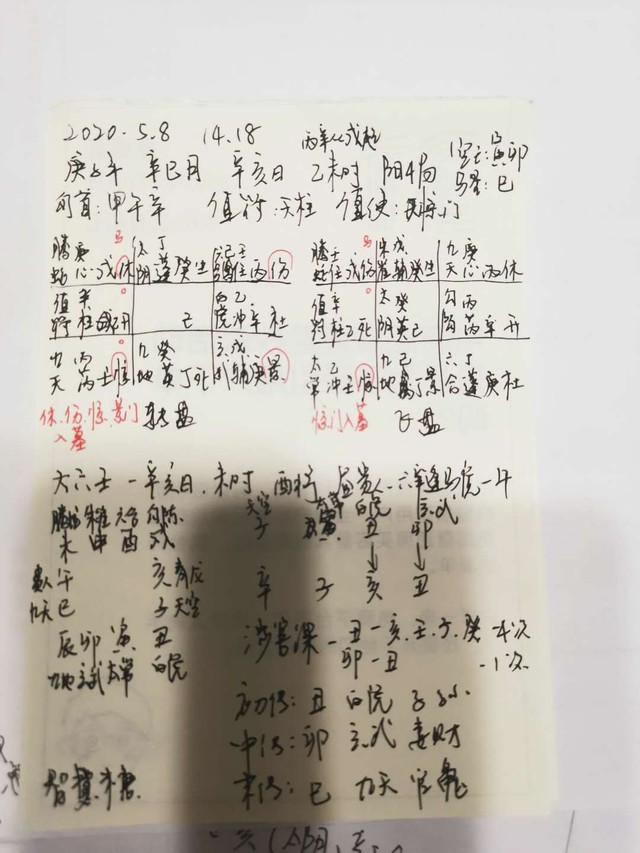 2020.5.8 14.18
庚子年 辛巳月 辛亥日 乙未时 阳4局 空亡:寅卯
马星:巳
旬首:甲午辛 值符:天柱 值使:惊门
马
腾庚 太丁 六己壬
蛇心戊休 阴蓬癸生 合任丙伤
值辛 白乙
符柱乙开 己 虎冲辛杜
九丙 九癸 玄戊
天芮壬惊 地英丁死 武辅庚景
休、伤、惊、景门 转盘
入墓
马
腾壬 朱戊 九庚
蛇任戊伤 雀辅癸生 天心丙休
值辛 太癸 勾丙
符柱乙死 阴英己 陈芮辛开
太乙 九己 六丁
常冲壬惊 地禽丁景 合蓬庚杜
惊门入墓 飞盘
大六壬一辛亥日.未时 酉将
腾蛇 朱雀 六合 勾陈 天空 白虎 玄武
未 申 酉 戌 子 丑 卯
贵人 午 亥 青龙 辛 子 亥 丑
九天 巳 子 天空
辰 卯 寅 丑 涉害深一丑一亥.壬.子.癸一4次
九地 玄武 太常 白虎 卯一丑 一1次
初传: 丑 白虎 子孙
中传: 卯 玄武 妻财
末传: 巳 九天 官鬼